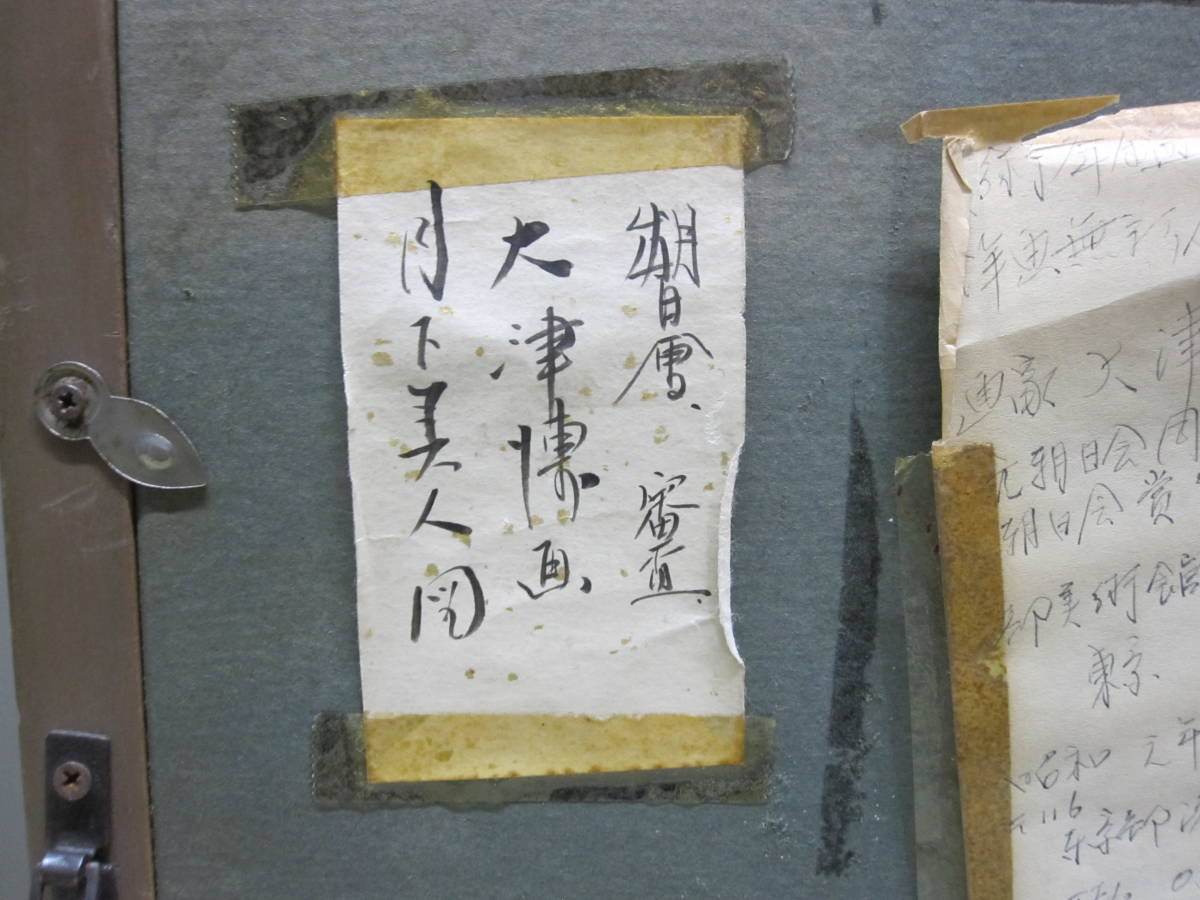 朝日會、審査、
大津博画
月下美人図
画家 大津
元朝日会
朝日会賞
部美術館
東京
昭和 元年
〒116
東京都